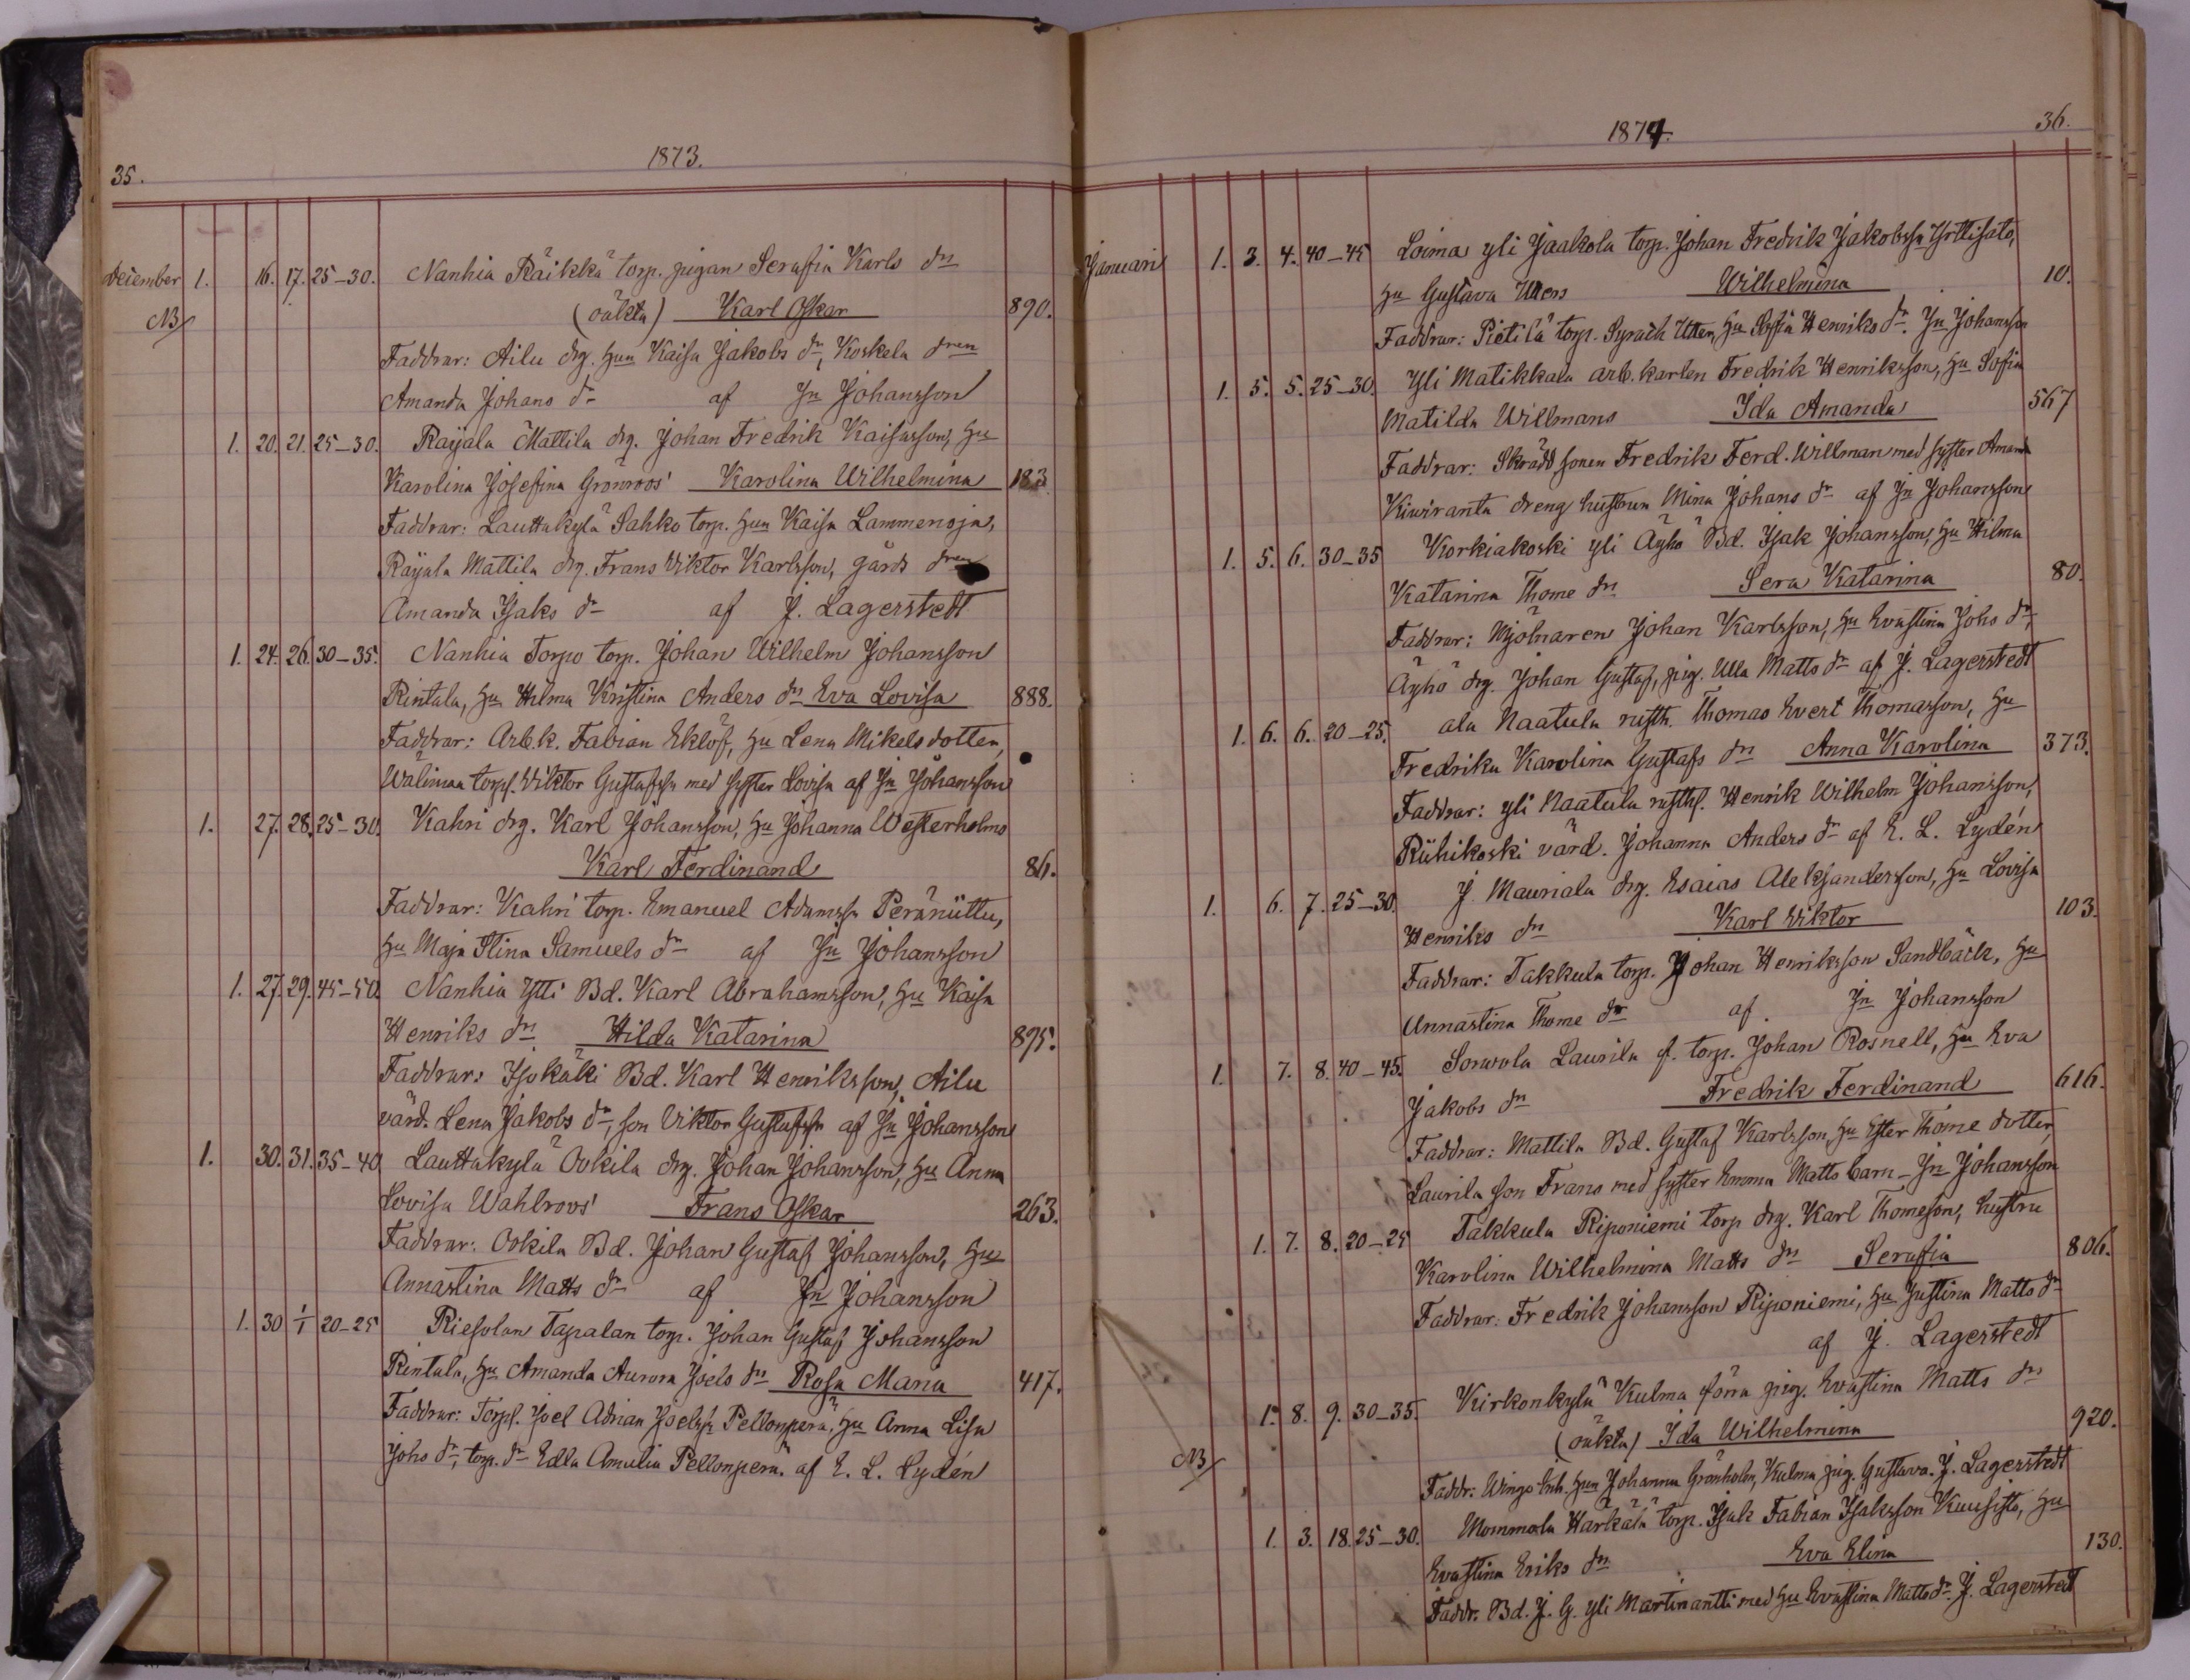 35.
1873.
December 1. 16. 17. 25–30. Nanhia Räikkä torp. pigan Serafia Karls dr
NB (oäkta) Karl Oskar 890.
Faddrar: Ailu drg. hun Kaisa Jakobs dr, Koskela dren
Amanda Johans dr af Jn Johansson
1. 20. 21. 25–30. Raijala Mattila drg. Johan Fredrik Kaisasson, hu
Karolina Josefina Grönroos' Karolina Wilhelmina 183
Faddrar: Lauttakylä Sahko torp. hun Kaisa Lammenoja,
Raijala Mattila drg. Frans Viktor Karlsson, gårds dren
Amanda Isaks dr af J. Lagerstedt
1. 24. 26. 30–35. Nanhia Torpo torp. Johan Wilhelm Johansson
Rintala, hu Hilma Kristina Anders dr Eva Lovisa 888.
Faddrar: Arb.k. Fabian Eklöf, hu Lena Mikels dotter,
Wälimaa torps. Viktor Gustafssn med syster Lovisa af Jn Johansson
1. 27. 28. 25–30. Kahri drg. Karl Johansson, hu Johanna Westerholms
Karl Ferdinand 86.
Faddrar: Kahri torp. Emanuel Adamssn Peräniittu,
hu Maja Stina Samuels dr af Jn Johansson
1. 27. 29. 45–50. Nanhia Ytti Bd. Karl Abrahamsson, hu Kaisa
Henriks dr Hilda Katarina 895.
Faddrar: Isokäki Bd. Karl Henriksson, Ailu
värd. Lena Jakobs dr, son Viktor Gustafssn af Jn Johansson
1. 30. 31. 35–40 Lauttakylä Ovkila drg. Johan Johansson, hu Anna
Lovisa Wahlroos' Frans Oskar 263.
Faddrar: Ovkila Bd. Johan Gustaf Johansson, hu
Annastina Matts dr af Jn Johansson
1. 30 1/1 20–25 Riesolan Tapalan torp. Johan Gustaf Johansson
Rintala, hu Amanda Aurora Joels dr Rosa Maria 417.
Faddrar: Torps. Joel Adrian Joelssn Pellonperä, hu Anna Lisa
Johs dr, torp. dr Edla Amalia Pellonperä. af E. L. Lydén
1874.
36.
Januari 1. 3. 4. 40–45 Loima yli Jaakola torp. Johan Fredrik Jakobssn Yrttisalo,
hu Gustava Uters Wilhelmina 10.
Faddrar: Pietilä torp. Syrach Utter, hu Sofia Henriks dr. Jn Johansson
1. 5. 5. 25–30. Yli Matikkala arb. karlen Fredrik Henriksson, hu Sofia
Matilda Willmans Ida Amanda 567
Faddrar: Skrädd sonen Fredrik Ferd. Willman med syster Amanda
Kiwiranta dreng hustrun Mina Johans dr af Jn Johansson
1. 5. 6. 30–35 Korkiakoski yli Äyhö Bd. Isak Johansson, hu Hilma
Katarina Thome dr Sera Katarina 80.
Faddrar: Mjölnaren Johan Karlsson, hu Evastina Johs dr,
Äyhö drg. Johan Gustaf, pig. Ulla Matts dr af J. Lagerstedt
1. 6. 6. 20–25. ala Naatula rusth. Thomas Evert Thomasson, hu
Fredrika Karolina Gustafs dr Anna Karolina 373.
Faddrar: yli Naatula rusths. Henrik Wilhelm Johansson,
Riihikoski värd. Johanna Anders dr af E. L. Lydén
1. 6. 7. 25–30. J. Mauriala drg. Esaias Aleksandersson, hu Lovisa
Henriks dr Karl Viktor 103.
Faddrar: Takkula torp. Johan Henriksson Sandbäck, hu
Annastina Thome dr af. Jn Johansson
1. 7. 8. 40–45. Sorwola Laurila f. torp. Johan Rosnell, hu Eva
Jakobs dr Fredrik Ferdinand 616.
Faddrar: Mattila Bd. Gustaf Karlsson, hu Ester Thome dotter,
Laurila son Frans med syster Emma Matts barn – Jn Johansson
1. 7. 8. 20–25 Takkula Riponiemi torp drg. Karl Thomeson, hustru
Karolina Wilhelmina Matts dr Serafia 806.
Faddrar: Fredrik Johansson Riponiemi, hu Justina Matts dr
af J. Lagerstedt
1. 8. 9. 30–35. Kirkonkylä Kulma förra pig. Evastina Matts dr
NB (oäkta) Ida Wilhelmina 920.
Faddr: Wingo Inh. hun Johanna Grönholm, Kulma pig. Gustava. J. Lagerstedt
1. 3. 18. 25–30. Mommola Härkälä torp. Isak Fabian Isaksson Kuusisto, hu
Evastina Eriks dr Eva Elina 130.
Faddr. Bd. J. G. yli Martinantti med hu Evastina Matts dr J. Lagerstedt